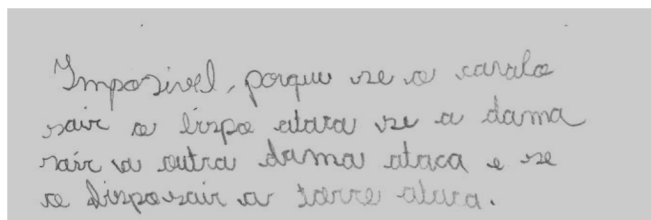 Imposivel, porque se o cavalo
sair o bispo ataca se a dama
sair a outra dama ataca e se
o bispo sair a torre ataca.